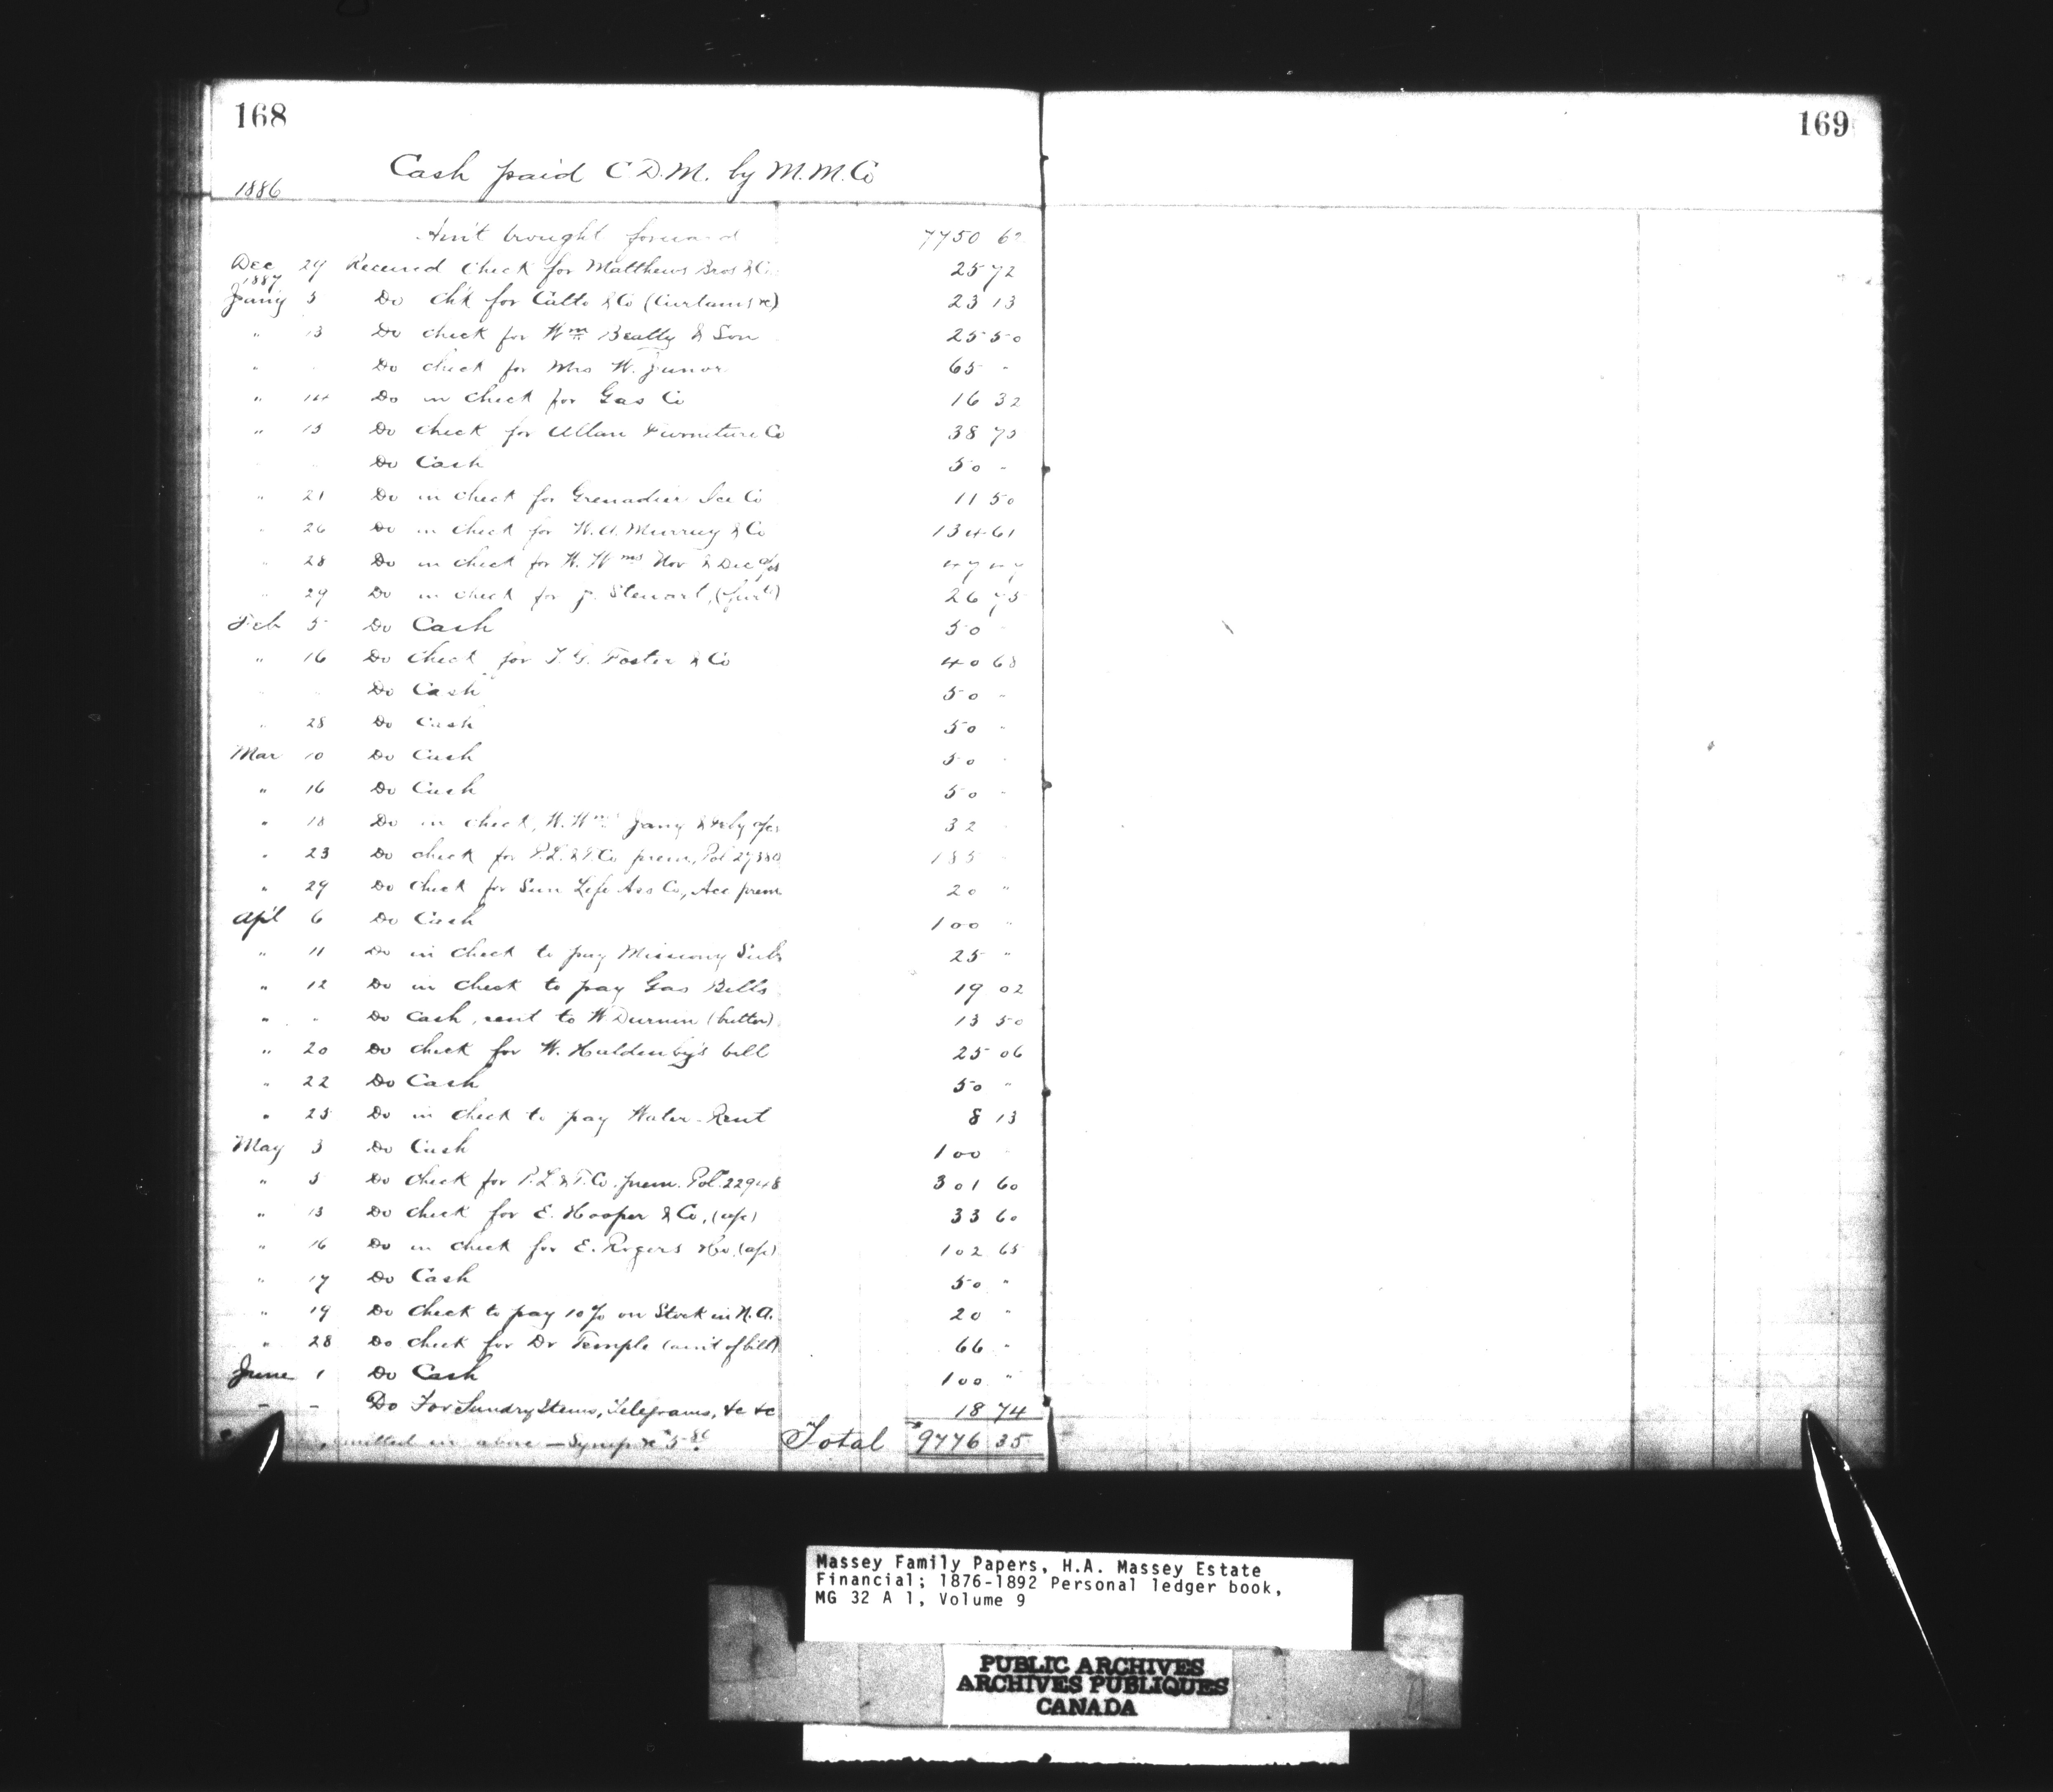 168
169
Cash paid C.D.M. by M.M.Co
1886
Am't brought forward 7750 62
Dec 29 Received Check for Matthews Bros & Co 25 72
1887
Jan'y 5 Do ch'k for Cutto & Co (Curtains &c) 23 13
" 13 Do check for Wm Beatty & Son 25 50
" " Do check for Mrs W. Junor 65 -
" 14 Do in check for Gas Co 16 32
" 15 Do Check for Allan Furniture Co 38 75
" " Do Cash 50 -
" 21 Do in check for Grenadier Ice Co 11 50
" 26 Do in check for W.A. Murray & Co 134 61
" 28 Do in check for W. Wms Nov & Dec a/cs 47 47
" 29 Do in check for J. Stewart, 26 75
Feb 5 Do Cash 50 -
" 16 Do Check for J.G. Foster & Co 40 68
" " Do Cash 50 "
" 28 Do Cash 50 "
Mar 10 Do Cash 50 "
" 16 Do Cash 50 "
" 18 Do in check, W. Wms Jany & Feby a/cs 32
" 23 Do check for P.L. & T. Co prem, Pol 27380 185 -
" 29 Do Check for Sun Life Ass Co, Acc prem 20 "
Ap'l 6 Do Cash 100 "
" 11 Do in check to pay Missiony Sub 25 "
" 12 Do in check to pay Gas Bills 19 02
" " Do Cash, sent to W Durnin (butter) 13 50
" 20 Do check for W. Haldenby's bill 25 06
" 22 Do Cash 50 "
" 25 Do in check to pay Water-Rent 8 13
May 3 Do Cash 100
" 5 Do check for P.L. & T. Co. prem. Pol. 22948 301 60
" 13 Do check for E. Hooper & Co, (a/c) 33 60
" 16 Do in check for E. Rogers (a/c) 102 65
" 17 Do Cash 50 "
" 19 Do Check to pay 10% on Stock in N.A. 20 "
" 28 Do check for Dr Temple (am't of bill) 66 "
June 1 Do Cash 100 "
- - Do For Sundry Items, Telegrams, &c &c 18 74
omitted in above — Syrup &c Total $9776 35
Massey Family Papers, H.A. Massey Estate
Financial; 1876-1892 Personal ledger book,
MG 32 A 1, Volume 9
PUBLIC ARCHIVES
ARCHIVES PUBLIQUES
CANADA